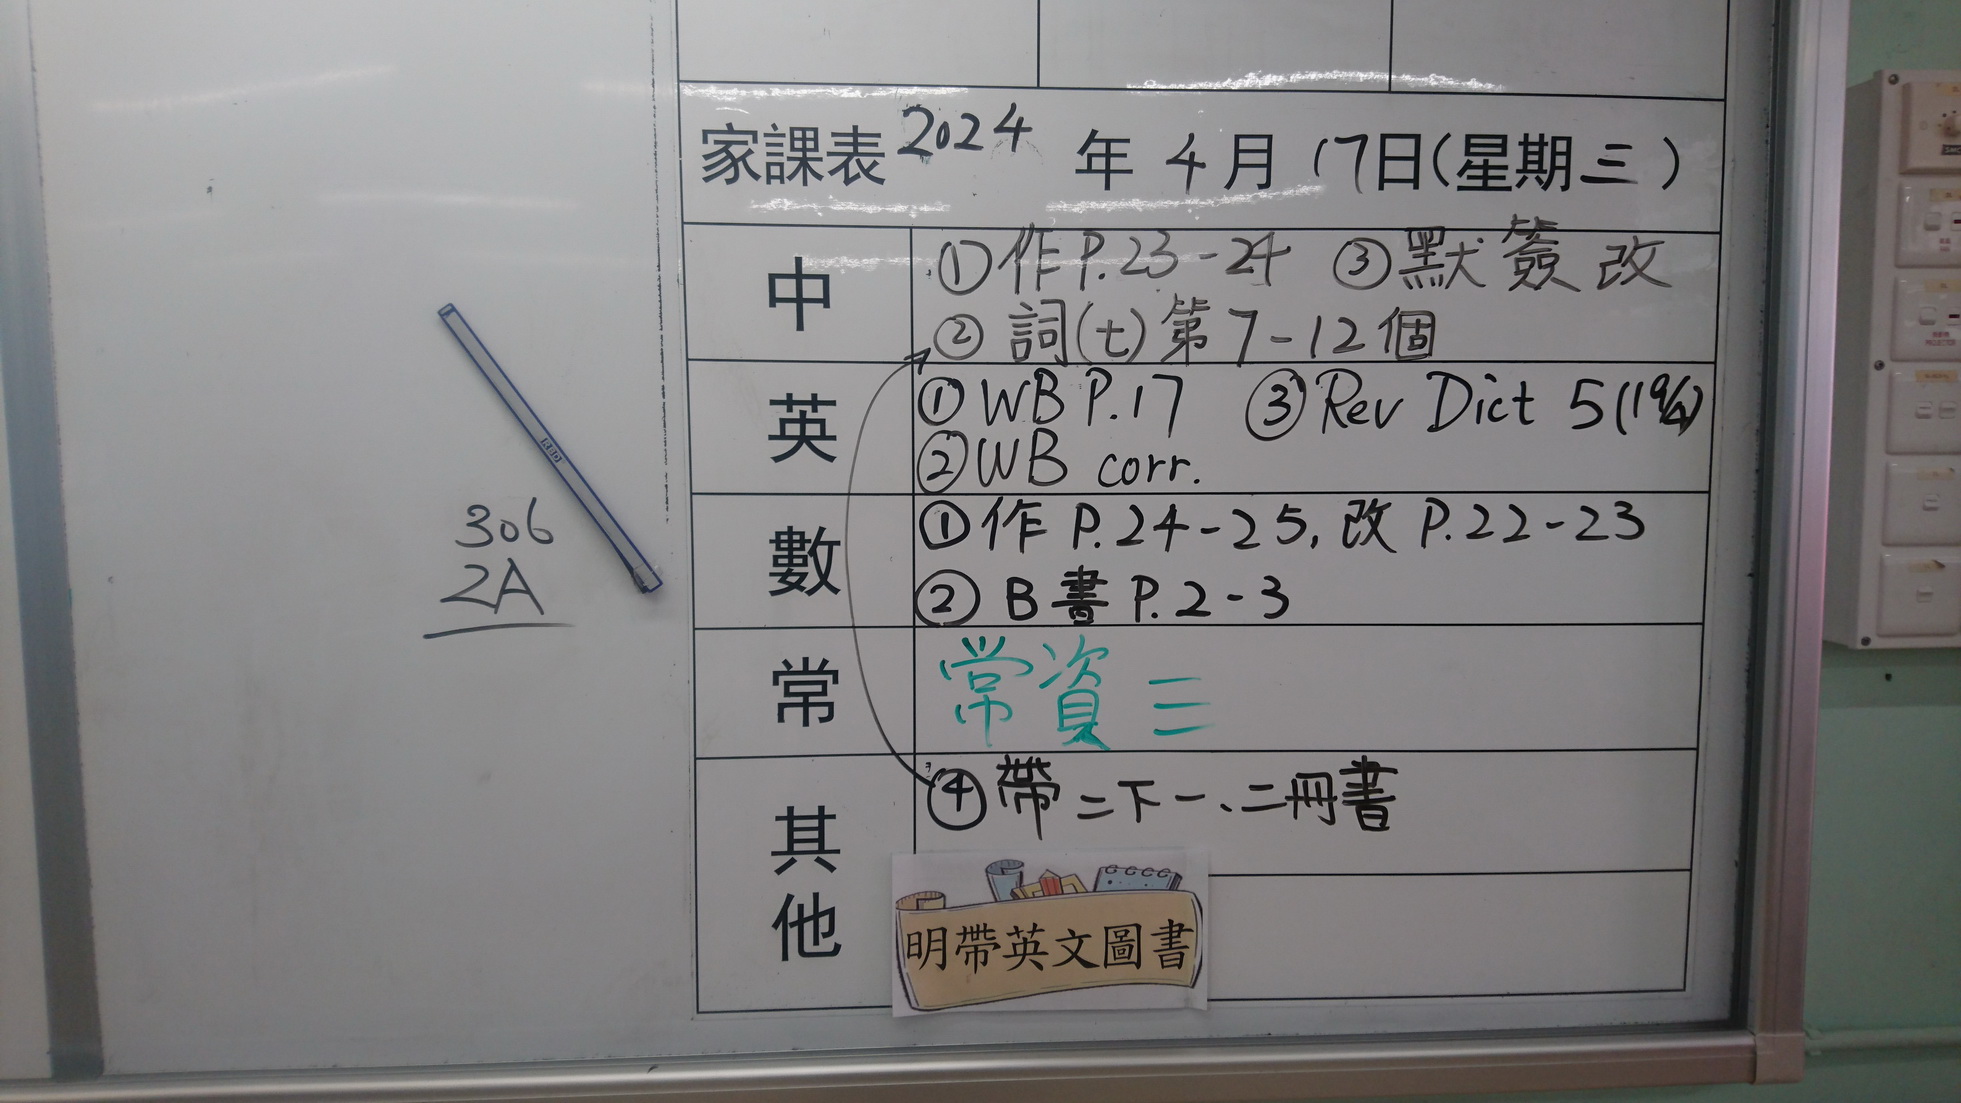 家課表2024年4月17日(星期三)
中
①作P.23-24 ③默簽改
②詞(七)第7-12個
英
①WB P.17 ③Rev Dict 5(19/4)
②WB corr.
數
①作P.24-25,改P.22-23
②B書P.2-3
常
常資三
其他
④帶二下一、二冊書
明帶英文圖書
306
2A